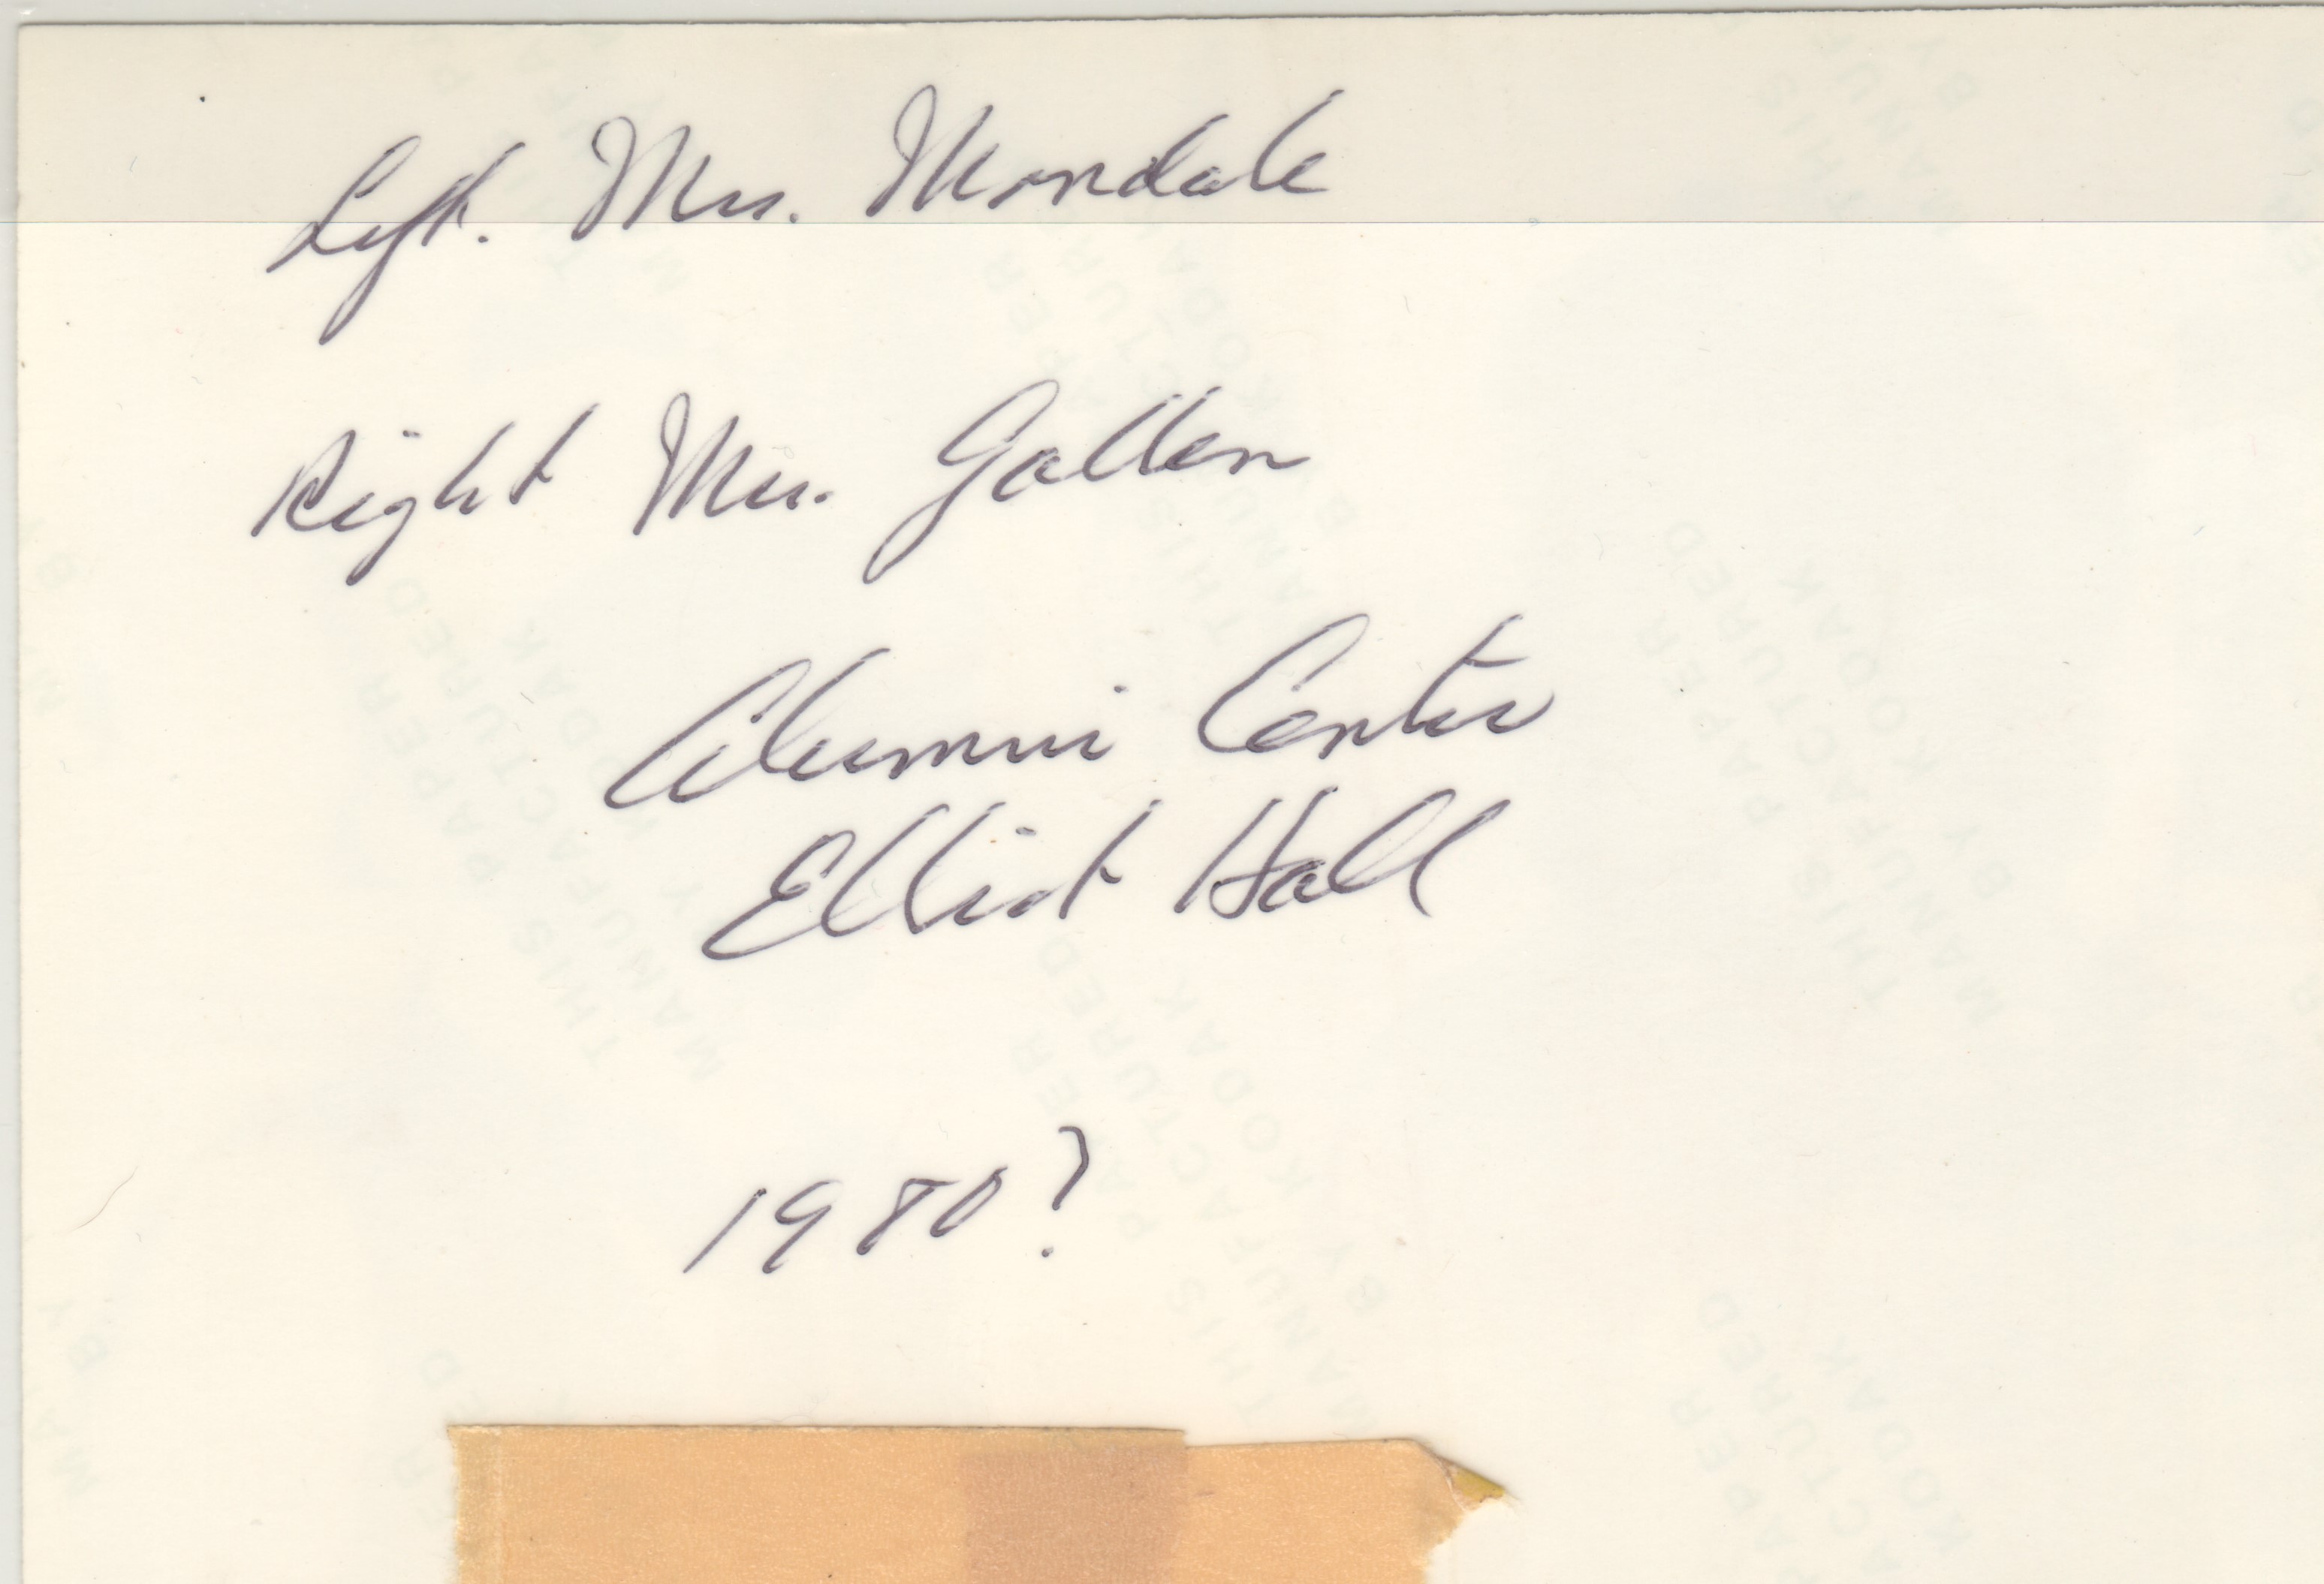 Left. Mrs. Mondale
Right Mrs. Gallen
Alumni Center
Elliot Hall
1980?
THIS PAPER
MANUFACTURED
BY KODAK